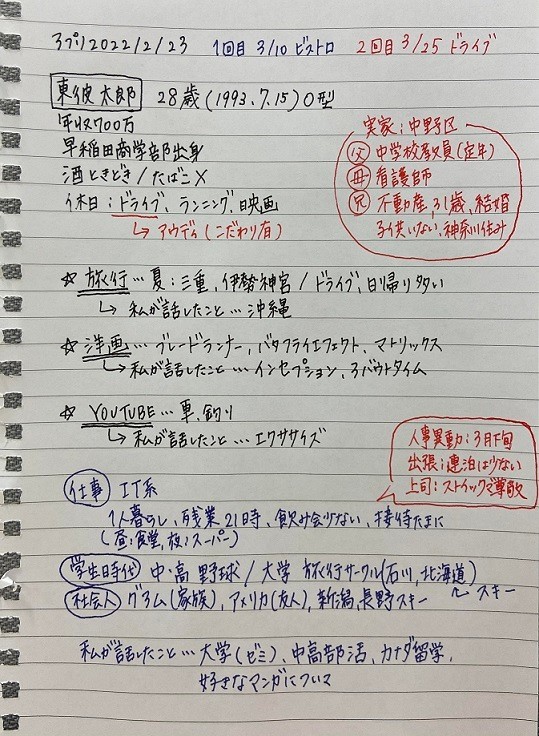 アプリ2022/2/23 1回目 3/10 ビストロ 2回目 3/25 ドライブ
東彼 太郎 28歳(1993.7.15)O型
年収700万
早稲田商学部出身
酒ときどき/たばこ×
休日:ドライブ、ランニング、映画
↳アウディ(こだわり有)
実家:中野区
父 中学校教員(定年)
母 看護師
兄 不動産、31歳、結婚
子供いない、神奈川住み
☆旅行…夏:三重、伊勢神宮/ドライブ、日帰り多い
↳私が話したこと…沖縄
☆洋画…ブレードランナー、バタフライエフェクト、マトリックス
↳私が話したこと…インセプション、アバウトタイム
☆YOUTUBE…車、釣り
↳私が話したこと…エクササイズ
人事異動:3月下旬
出張:連泊は少ない
上司:ストイックで尊敬
仕事 IT系
1人暮らし、残業21時、飲み会少ない、接待たまに
(昼:食堂、夜:スーパー)
学生時代 中・高 野球/大学 旅行サークル(石川、北海道)
↳スキー
社会人 グアム(家族)、アメリカ(友人)、新潟、長野スキー
私が話したこと…大学(ゼミ)、中高部活、カナダ留学、
好きなマンガについて